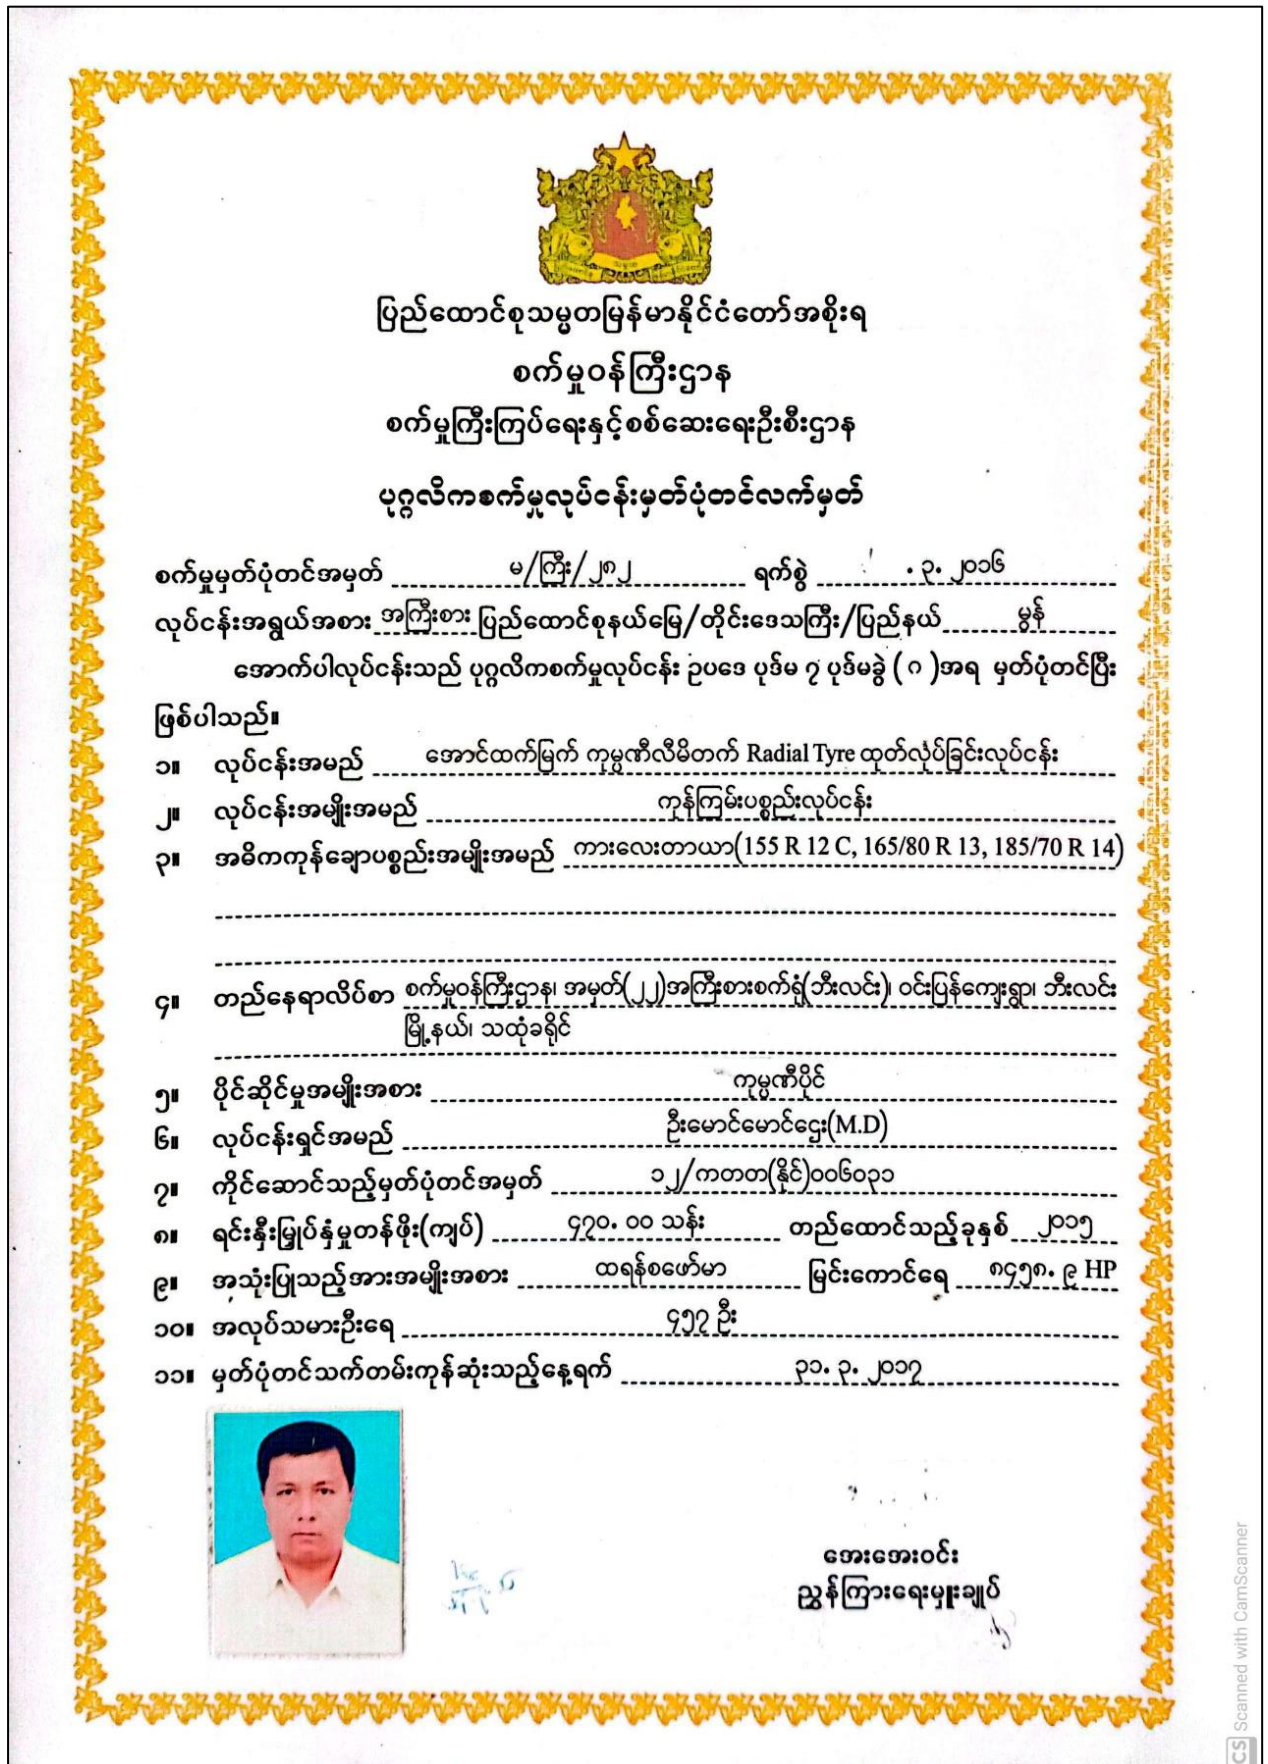 ပြည်ထောင်စုသမ္မတမြန်မာနိုင်ငံတော်အစိုးရ
စက်မှုဝန်ကြီးဌာန
စက်မှုကြီးကြပ်ရေးနှင့်စစ်ဆေးရေးဦးစီးဌာန
ပုဂ္ဂလိကစက်မှုလုပ်ငန်းမှတ်ပုံတင်လက်မှတ်
စက်မှုမှတ်ပုံတင်အမှတ် မ/ကြီး/၂၈၂ ရက်စွဲ . ၃. ၂၀၁၆
လုပ်ငန်းအရွယ်အစား အကြီးစား ပြည်ထောင်စုနယ်မြေ/တိုင်းဒေသကြီး/ပြည်နယ် မွန်
အောက်ပါလုပ်ငန်းသည် ပုဂ္ဂလိကစက်မှုလုပ်ငန်း ဥပဒေ ပုဒ်မ ၇ ပုဒ်မခွဲ ( ဂ )အရ မှတ်ပုံတင်ပြီး
ဖြစ်ပါသည်။
၁။ လုပ်ငန်းအမည် အောင်ထက်မြက် ကုမ္ပဏီလီမိတက် Radial Tyre ထုတ်လုပ်ခြင်းလုပ်ငန်း
၂။ လုပ်ငန်းအမျိုးအမည် ကုန်ကြမ်းပစ္စည်းလုပ်ငန်း
၃။ အဓိကကုန်ချောပစ္စည်းအမျိုးအမည် ကားလေးတာယာ(155 R 12 C, 165/80 R 13, 185/70 R 14)
၄။ တည်နေရာလိပ်စာ စက်မှုဝန်ကြီးဌာန၊ အမှတ်(၂၂)အကြီးစားစက်ရုံ(ဘီးလင်း)၊ ဝင်းပြန်ကျေးရွာ၊ ဘီးလင်း
မြို့နယ်၊ သထုံခရိုင်
၅။ ပိုင်ဆိုင်မှုအမျိုးအစား ကုမ္ပဏီပိုင်
၆။ လုပ်ငန်းရှင်အမည် ဦးမောင်မောင်ဌေး(M.D)
၇။ ကိုင်ဆောင်သည့်မှတ်ပုံတင်အမှတ် ၁၂/ကတတ(နိုင်)၀၀၆၀၃၁
၈။ ရင်းနှီးမြှုပ်နှံမှုတန်ဖိုး(ကျပ်) ၄၇၀. ၀၀ သန်း တည်ထောင်သည့်ခုနှစ် ၂၀၁၅
၉။ အသုံးပြုသည့်အားအမျိုးအစား ထရန်စဖော်မာ မြင်းကောင်ရေ ၈၄၅၈. ၉ HP
၁၀။ အလုပ်သမားဦးရေ ၄၅၇ ဦး
၁၁။ မှတ်ပုံတင်သက်တမ်းကုန်ဆုံးသည့်နေ့ရက် ၃၁. ၃. ၂၀၁၇
အေးအေးဝင်း
ညွှန်ကြားရေးမှူးချုပ်
CS Scanned with CamScanner